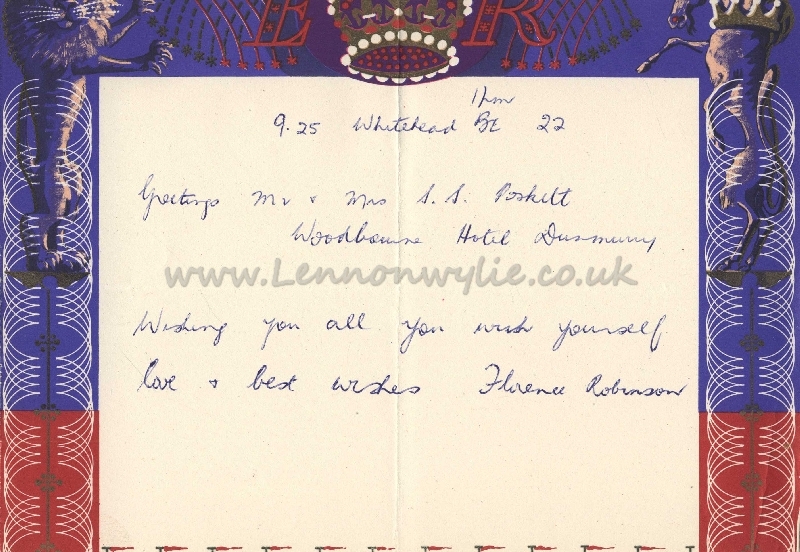 E R
11pm
9.25 Whitehead BE 22
Greetings Mr & Mrs S. S. Poskett
Woodbourne Hotel Dunmurry
www.Lennonwylie.co.uk
Wishing you all you wish yourself
love & best wishes Florence Robinson